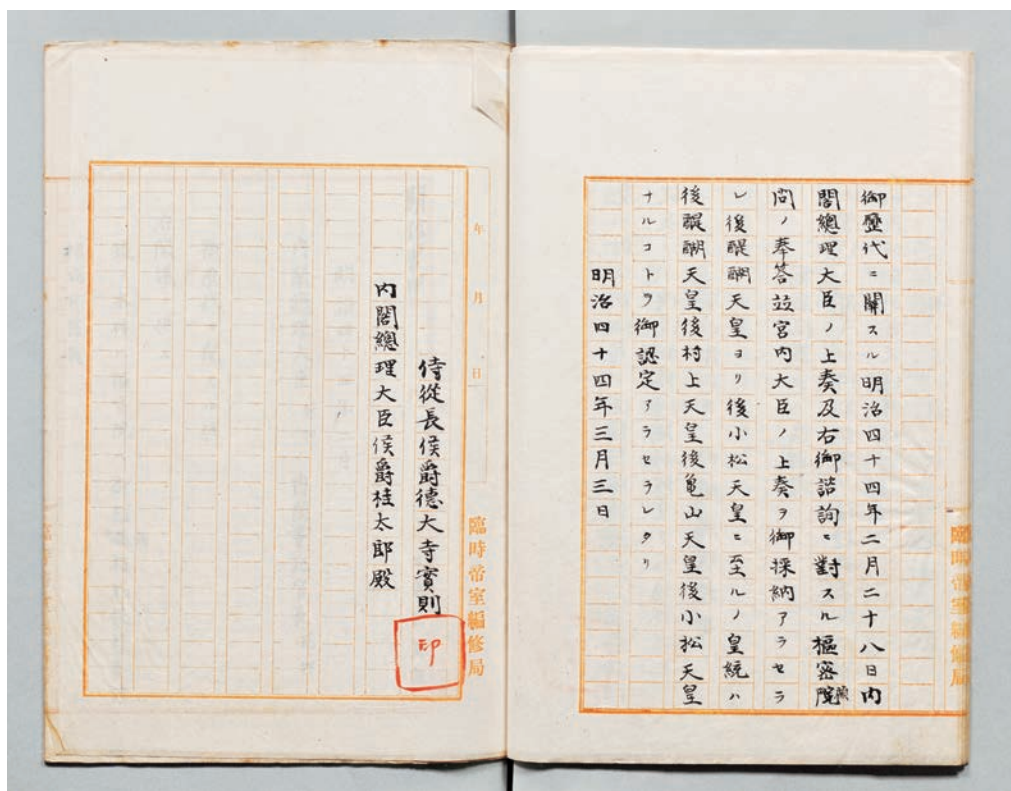 御歷代ニ關スル明治四十四年二月二十八日内
閣總理大臣ノ上奏及右御諮詢ニ對スル樞密院
問ノ奉答竝宮内大臣ノ上奏ヲ御採納アラセラ
レ後醍醐天皇ヨリ後小松天皇ニ至ルノ皇統ハ
後醍醐天皇後村上天皇後亀山天皇後小松天皇
ナルコトヲ御認定アラセラレタリ
明治四十四年三月三日
臨時帝室編修局
年月日
侍從長侯爵德大寺實則
印
内閣總理大臣侯爵桂太郎殿
臨時帝室編修局